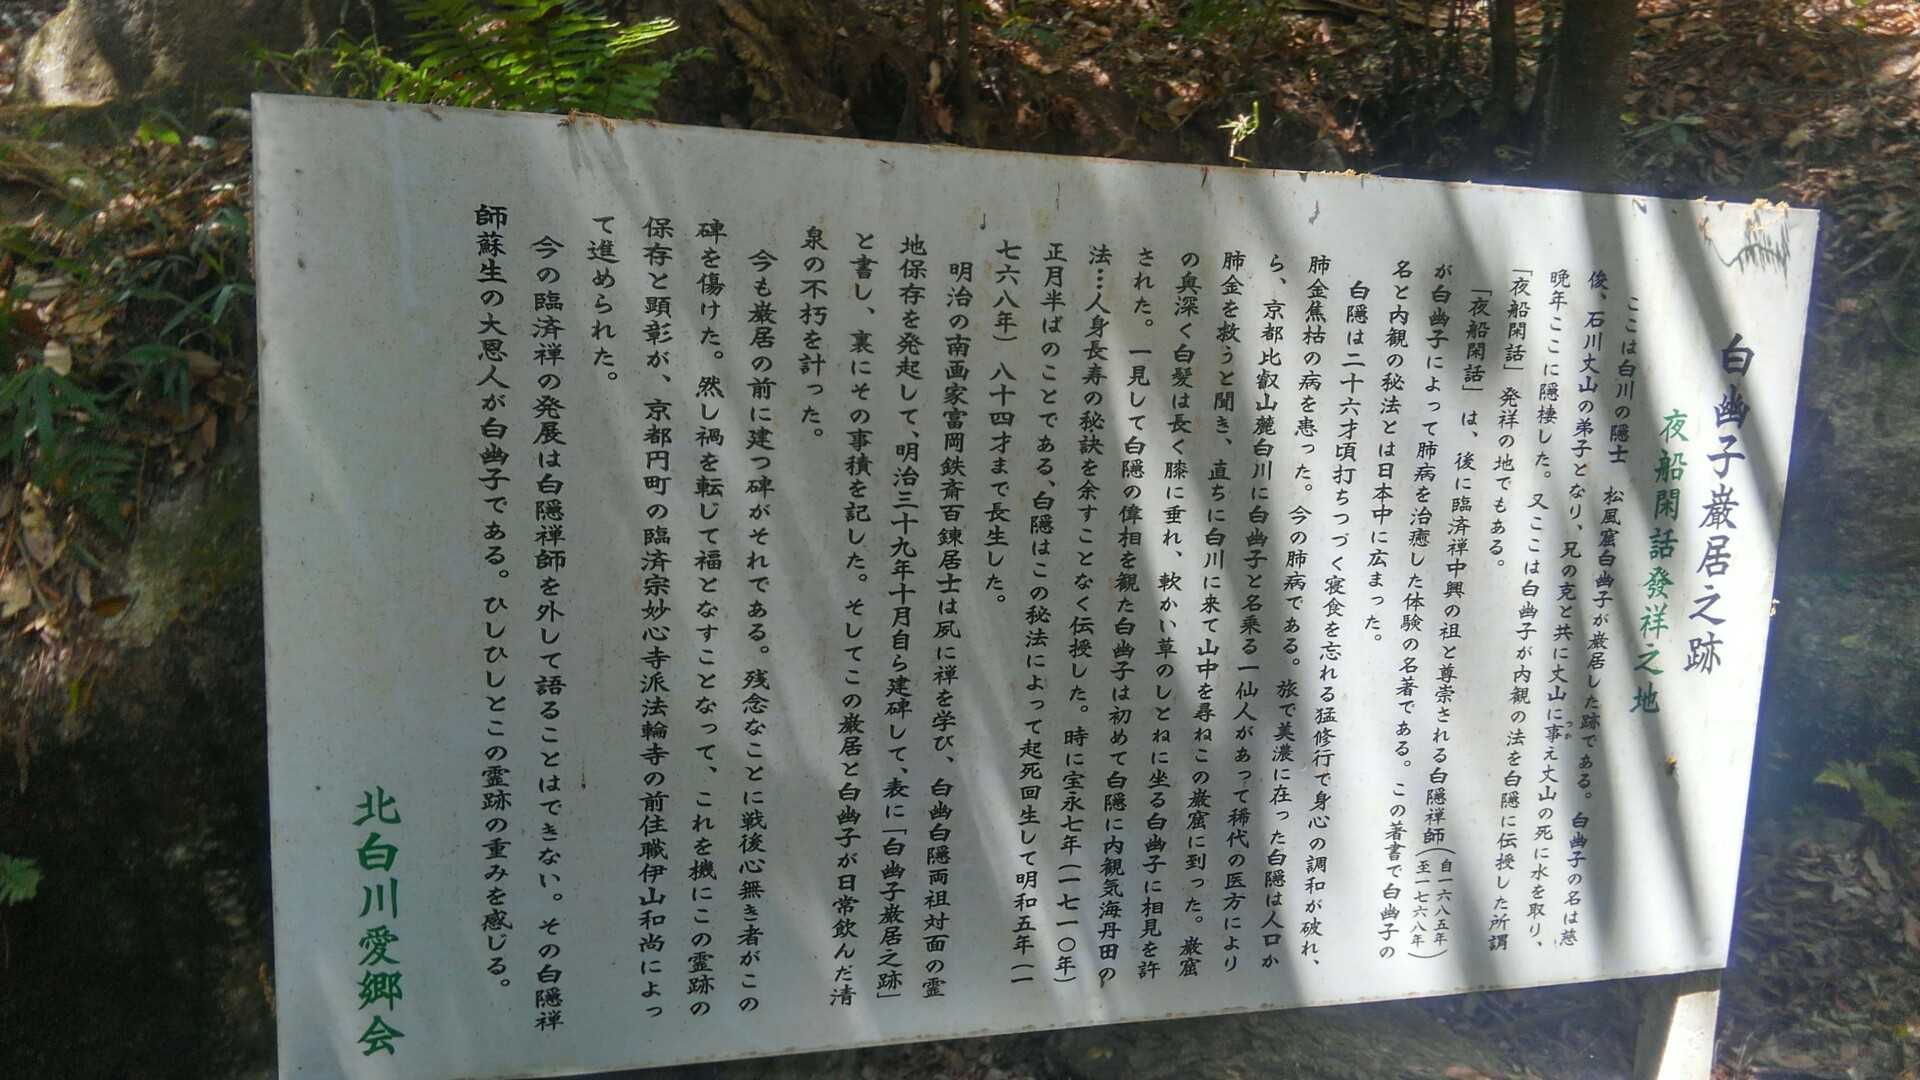 白幽子巌居之跡
夜船閑話發祥之地
ここは白川の隠士 松風窟白幽子が巌居した跡である。白幽子の名は慈
俊、石川丈山の弟子となり、兄の克と共に丈山に事え丈山の死に水を取り、
つか
晩年ここに隠棲した。又ここは白幽子が内観の法を白隠に伝授した所謂
「夜船閑話」発祥の地でもある。
「夜船閑話」は、後に臨済禅中興の祖と尊崇される白隠禅師(自一六八五年)(至一七六八年)
が白幽子によって肺病を治癒した体験の名著である。この著書で白幽子の
名と内観の秘法とは日本中に広まった。
白隠は二十六才頃打ちつづく寝食を忘れる猛修行で身心の調和が破れ、
肺金焦枯の病を患った。今の肺病である。旅で美濃に在った白隠は人口か
ら、京都比叡山麓白川に白幽子と名乗る一仙人があって稀代の医方により
肺金を救うと聞き、直ちに白川に来て山中を尋ねこの巌窟に到った。巌窟
の奥深く白髪は長く膝に垂れ、軟かい草のしとねに坐る白幽子に相見を許
された。一見して白隠の偉相を観た白幽子は初めて白隠に内観気海丹田の
法…人身長寿の秘訣を余すことなく伝授した。時に宝永七年(一七一〇年)
正月半ばのことである、白隠はこの秘法によって起死回生して明和五年(一
七六八年)八十四才まで長生した。
明治の南画家富岡鉄斎百錬居士は夙に禅を学び、白幽白隠両祖対面の霊
地保存を発起して、明治三十九年十月自ら建碑して、表に「白幽子巌居之跡」
と書し、裏にその事積を記した。そしてこの巌居と白幽子が日常飲んだ清
泉の不朽を計った。
今も巌居の前に建つ碑がそれである。残念なことに戦後心無き者がこの
碑を傷けた。然し禍を転じて福となすことなって、これを機にこの霊跡の
保存と顕彰が、京都円町の臨済宗妙心寺派法輪寺の前住職伊山和尚によっ
て進められた。
今の臨済禅の発展は白隠禅師を外して語ることはできない。その白隠禅
師蘇生の大恩人が白幽子である。ひしひしとこの霊跡の重みを感じる。
北白川愛郷会